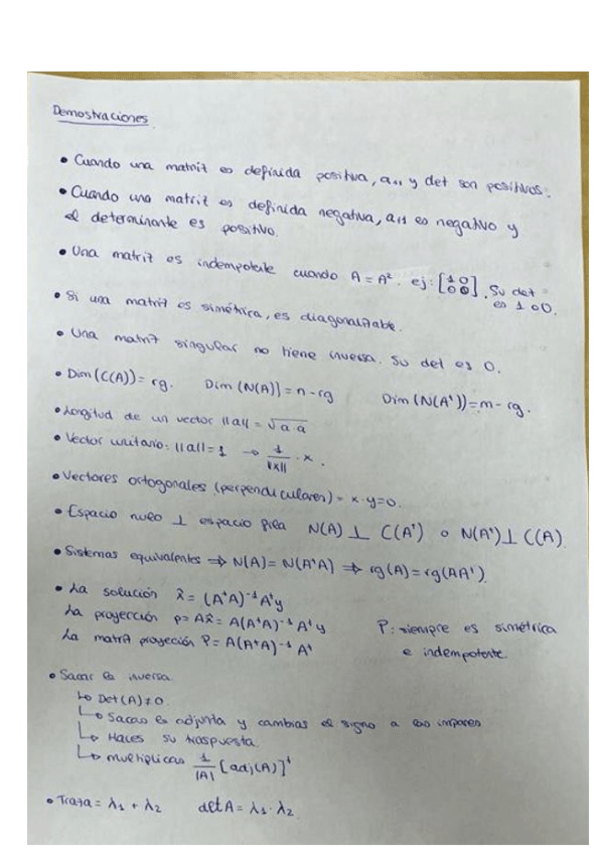 Demostraciones
• Cuando una matriz es definida positiva, a₁₁ y det son positivos.
• Cuando una matriz es definida negativa, a₁₁ es negativo y
el determinante es positivo.
• Una matriz es indempotente cuando A = A². ej: [1 0 / 0 0]. Su det
es 1 o 0.
• Si una matriz es simétrica, es diagonalizable.
• Una matriz singular no tiene inversa. Su det es 0.
• Dim(C(A)) = rg. Dim(N(A)) = n - rg Dim(N(A')) = m - rg.
• Longitud de un vector ||a|| = √a·a
• Vector unitario: ||a|| = 1 → 1/||x|| · x.
• Vectores ortogonales (perpendiculares) = x·y=0.
• Espacio nulo ⊥ espacio fila N(A) ⊥ C(A') o N(A') ⊥ C(A).
• Sistemas equivalentes ⇒ N(A) = N(A'A) ⇒ rg(A) = rg(AA').
• La solución x̂ = (A'A)⁻¹A'y
La proyección p = Ax̂ = A(A'A)⁻¹A'y P: siempre es simétrica
La matriz proyección P = A(A'A)⁻¹A' e indempotente.
• Sacar la inversa
↳ Det(A) ≠ 0.
↳ Sacas la adjunta y cambias el signo a los impares
↳ Haces su traspuesta.
↳ multiplicas 1/|A| [adj(A)]'
• Traza = λ₁ + λ₂ det A = λ₁ · λ₂.